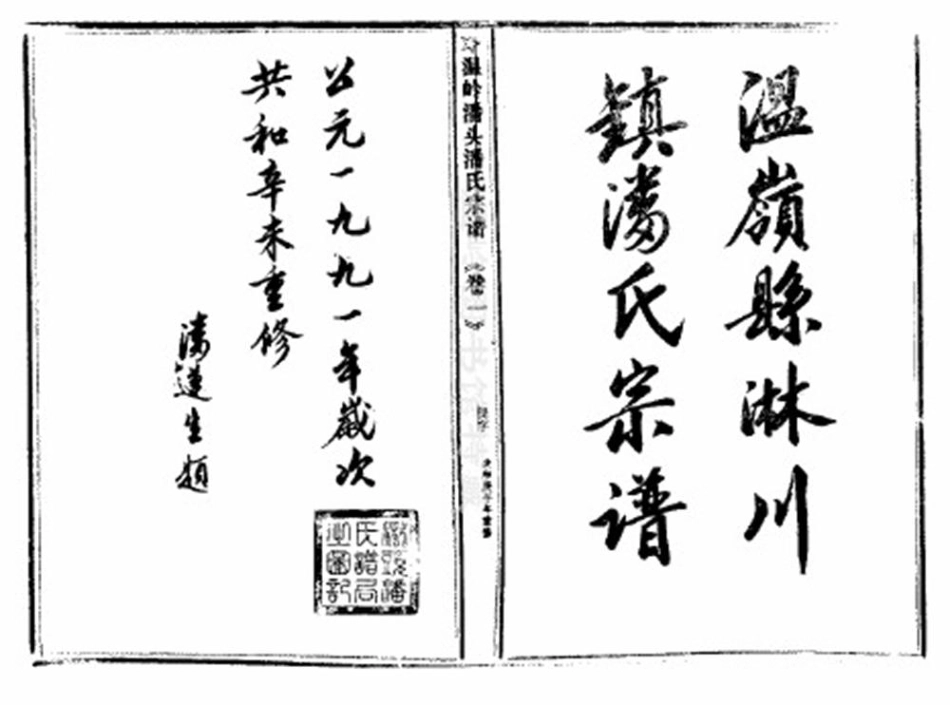 温嶺縣淋川
鎮潘氏宗谱
温岭潘头潘氏宗谱
《卷一》
公元一九九一年歲次
共和辛未重修
潘蓮生題
潘
氏譜局
之圖記